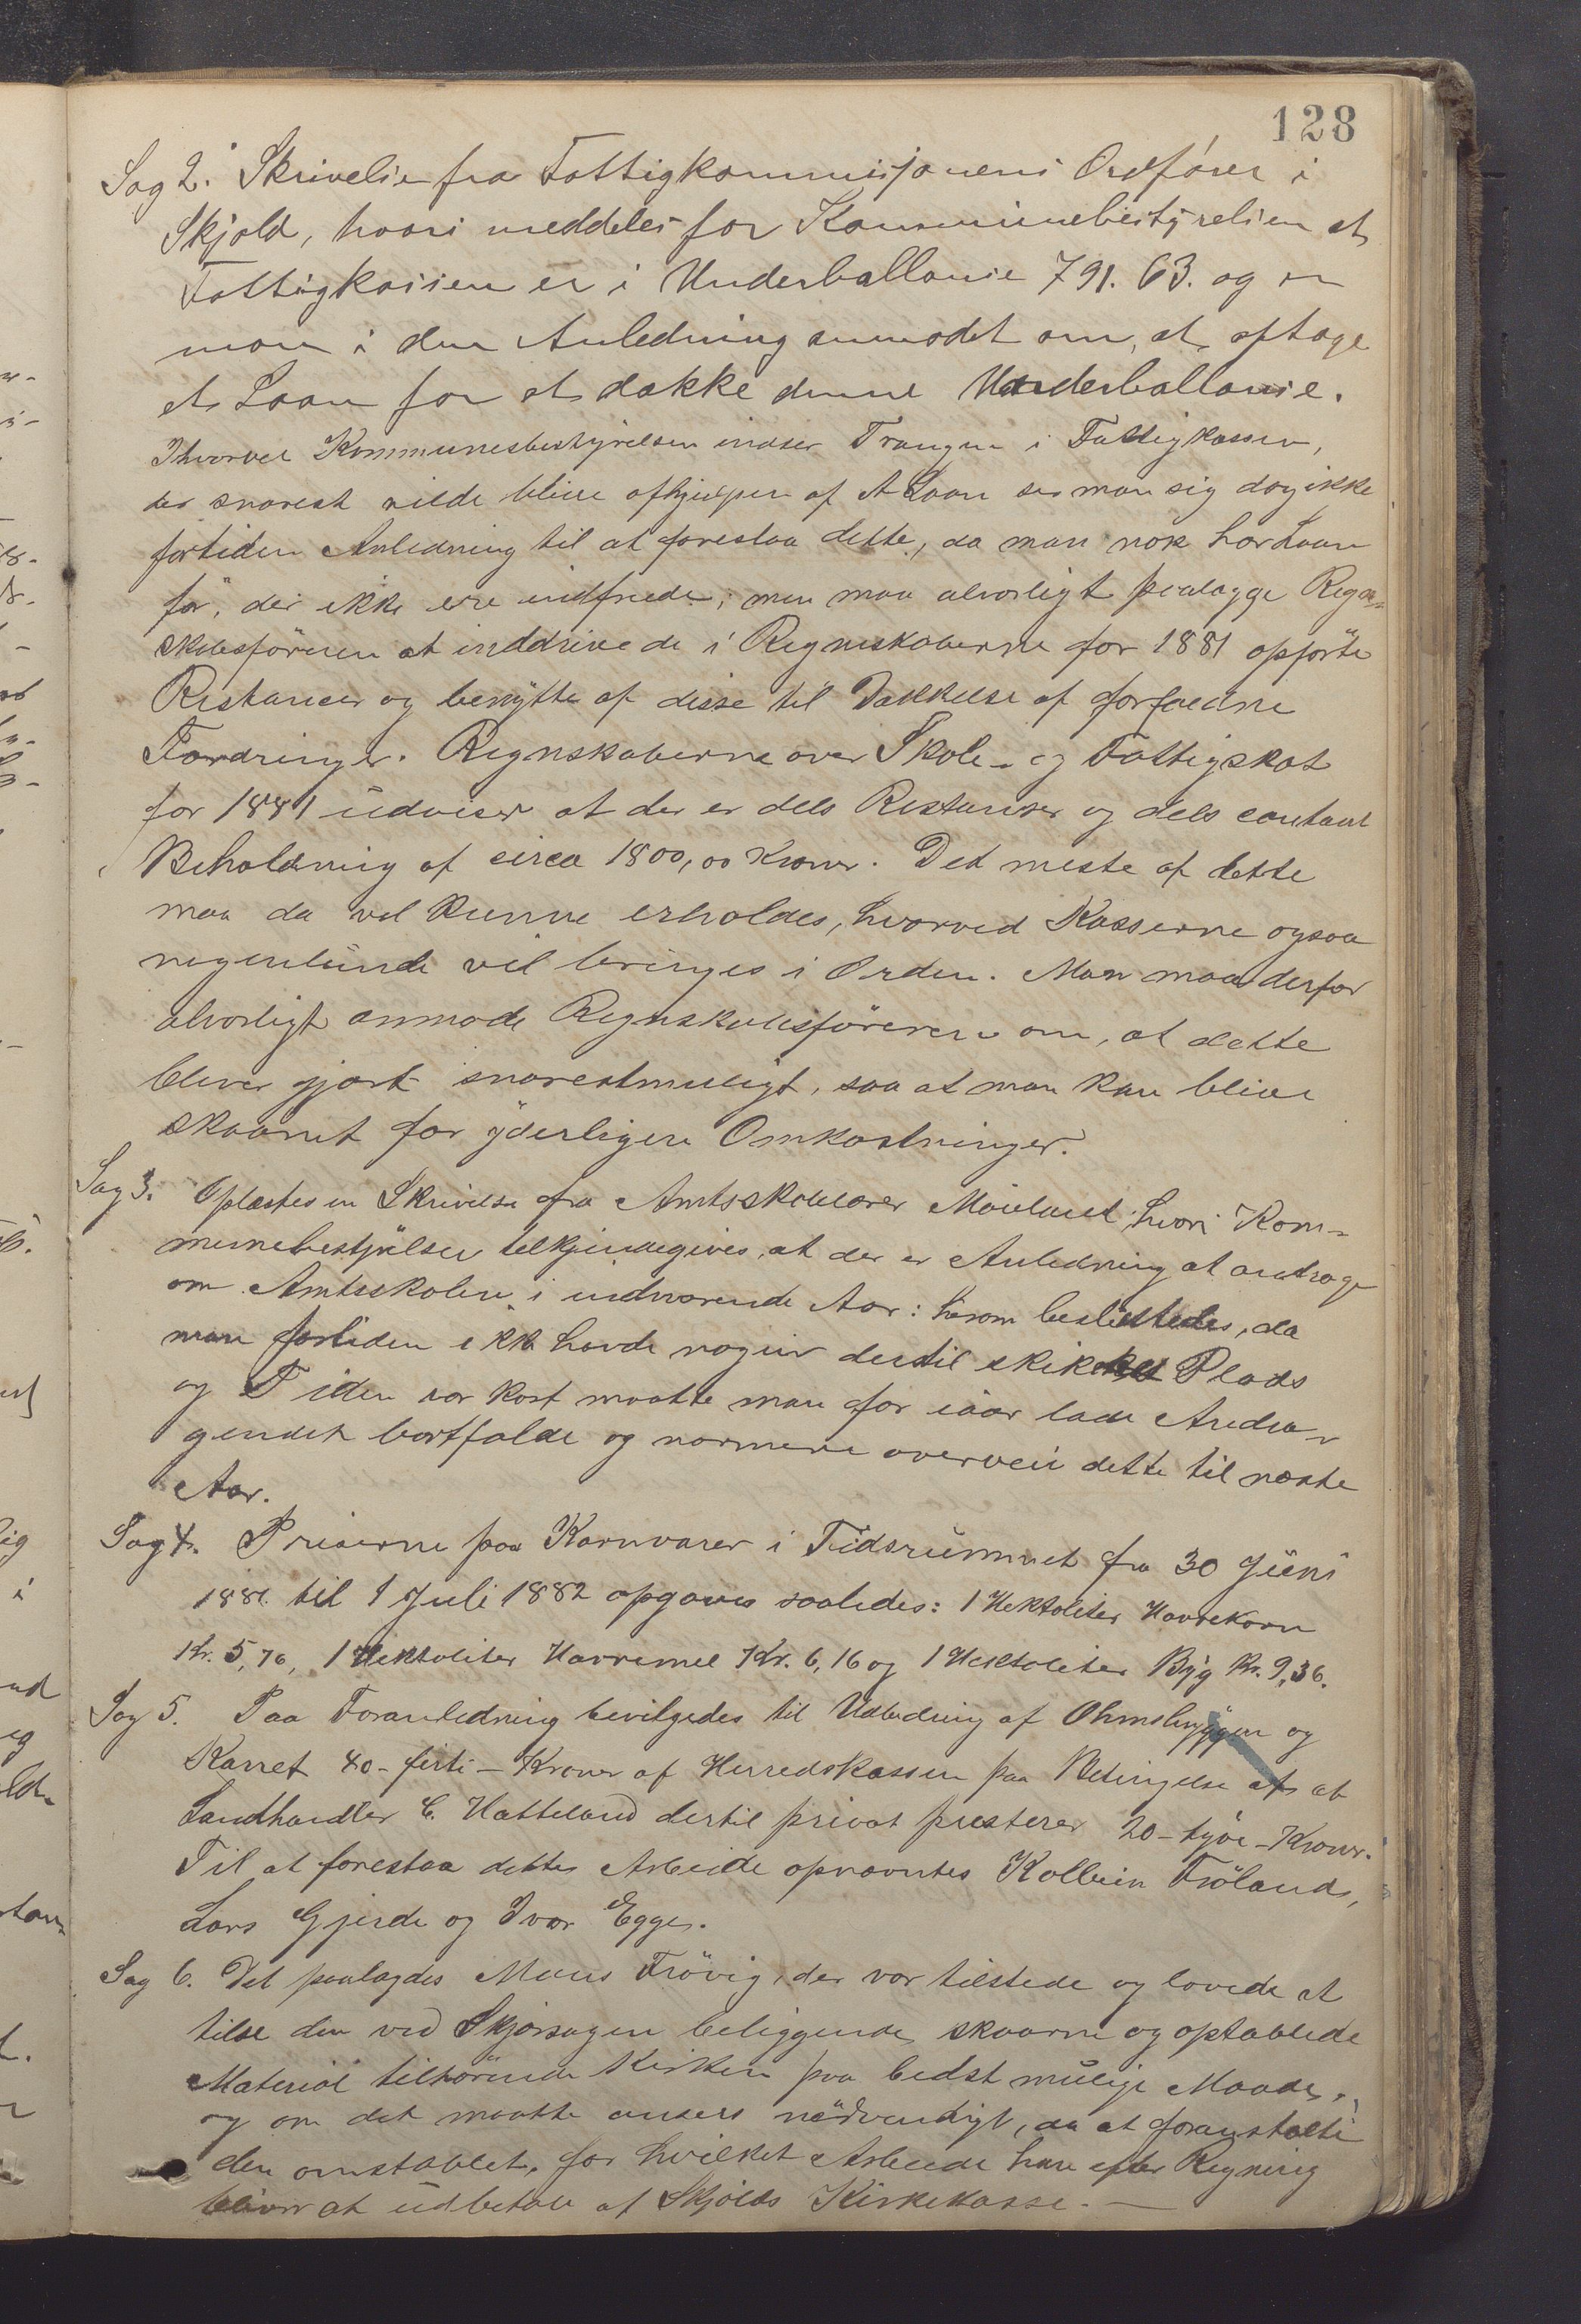 128
Sag 2. Skrivelse fra Fattigkommisjonens Ordförer i
Skjold, hvori meddeles for Kommunebestyrelsen at
Fattigkassen er i Underballanse 791. 63. og er
man i den Anledning anmodet om, at optage
et Laan for at dække denne Underballanse.
Ihvorvel Kommunesbestyrelsen indser Trangen i Fattigkassen,
der snarest vilde blive afhjulpen af et Laan ser man sig dog ikke
fortiden Anledning til at forestaa dette, da man nok har Laan
för, der ikke ere indfriede; men maa alvorligt paalægge Regn-
skabsföreren at inddrive de i Regneskaberne for 1881 opförte
Restancer og benytte af disse til Dækkelse af forfaldne
Fordringer. Regnskaberne over Skole- og Fattigskat
for 1881 udviser at der er dels Restanser og dels contant
Beholdning af circa 1800,00 Kroner. Det meste af dette
maa da vel kunne erholdes, hvorved Kasserne ogsaa
nogenlunde vil bringes i Orden. Man maa derfor
alvorligt anmode Regnskabsföreren om, at dette
bliver gjort snarestmuligt, saa at man kan blive
skaanet for yderligere Omkostninger.
Sag 3. Oplæstes en Skrivelse fra Amtsskolelærer hvori Kom-
munebestyrelsen tilkjendegives, at der er Anledning at andrage
om Amtsskolen i indværende Aar: herom besluttedes, da
man fortiden ikke havde nogen dertil skikket Plads
og Tiden var kort maatte man for iaar lade Andra-
gendet bortfalde og nærmere overveie dette til næste
Aar.
Sag 4. Priserne paa Kornvarer i Tidsrummet fra 30 Juni
1881. til 1 Juli 1882 opgaves saaledes: 1 Hektoliter Havrekorn
Kr. 5,76, 1 Hektoliter Havremel Kr. 6,16 og 1 Hektoliter Byg Kr. 9,36.
Sag 5. Paa Foranledning bevilgedes til Udbedring af og
Karret 40-firti-Kroner af Herredskassen paa Betingelse af at
Landhandler C. Hatteland dertil privat presterer 20-tyve-Kroner.
Til at forestaa dette Arbeide opnævntes Kolbein Fröland,
Lars Gjerde og Ivar Egge.
Sag 6. Det paalagdes Mons Frövig, der var tilstede og lovede at
tilse den ved Skjörsagen beliggende skaarne og opstablede
Material tilhörende Kirken paa bedst mulige Maade,
og om det maatte ansees nödvendigt, da at foranstalte
den omstablet, for hvilket Arbeide han efter Regning
bliver at udbetale af Skjolds Kirkekasse.